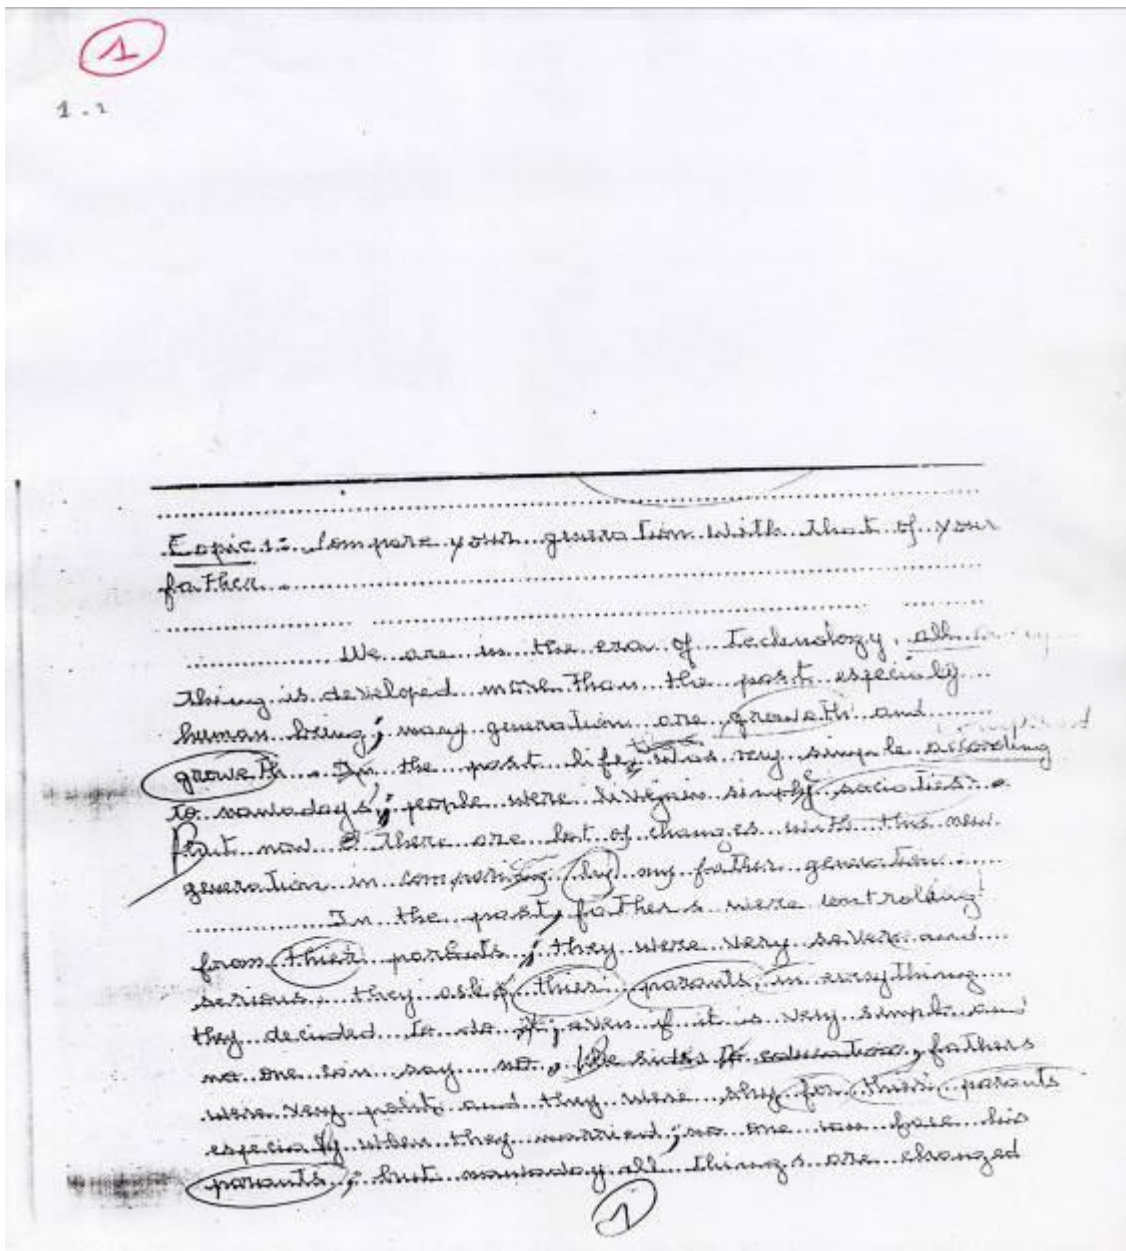 1
1.1
Topic 1: Compare your generation with that of your
father.
We are in the era of Technology, all
thing is developed more than the past especialy
human being; many generation are groweth and
groweth. In the past life was very simple according
to nowadays; people were live in simple societies.
But now there are lot of changes with this new
generation in comparing by my father generation.
In the past, fathers were controlaing
from thier parents; they were very sever and
serious, they asks thier parants in everything
they decided to do it; even if it is very simple and
no one can say no. Besides to education, fathers
were very polit and they were shy for thier parants
especialy when they married; no one can face his
parants; but nowaday all things are changed
1